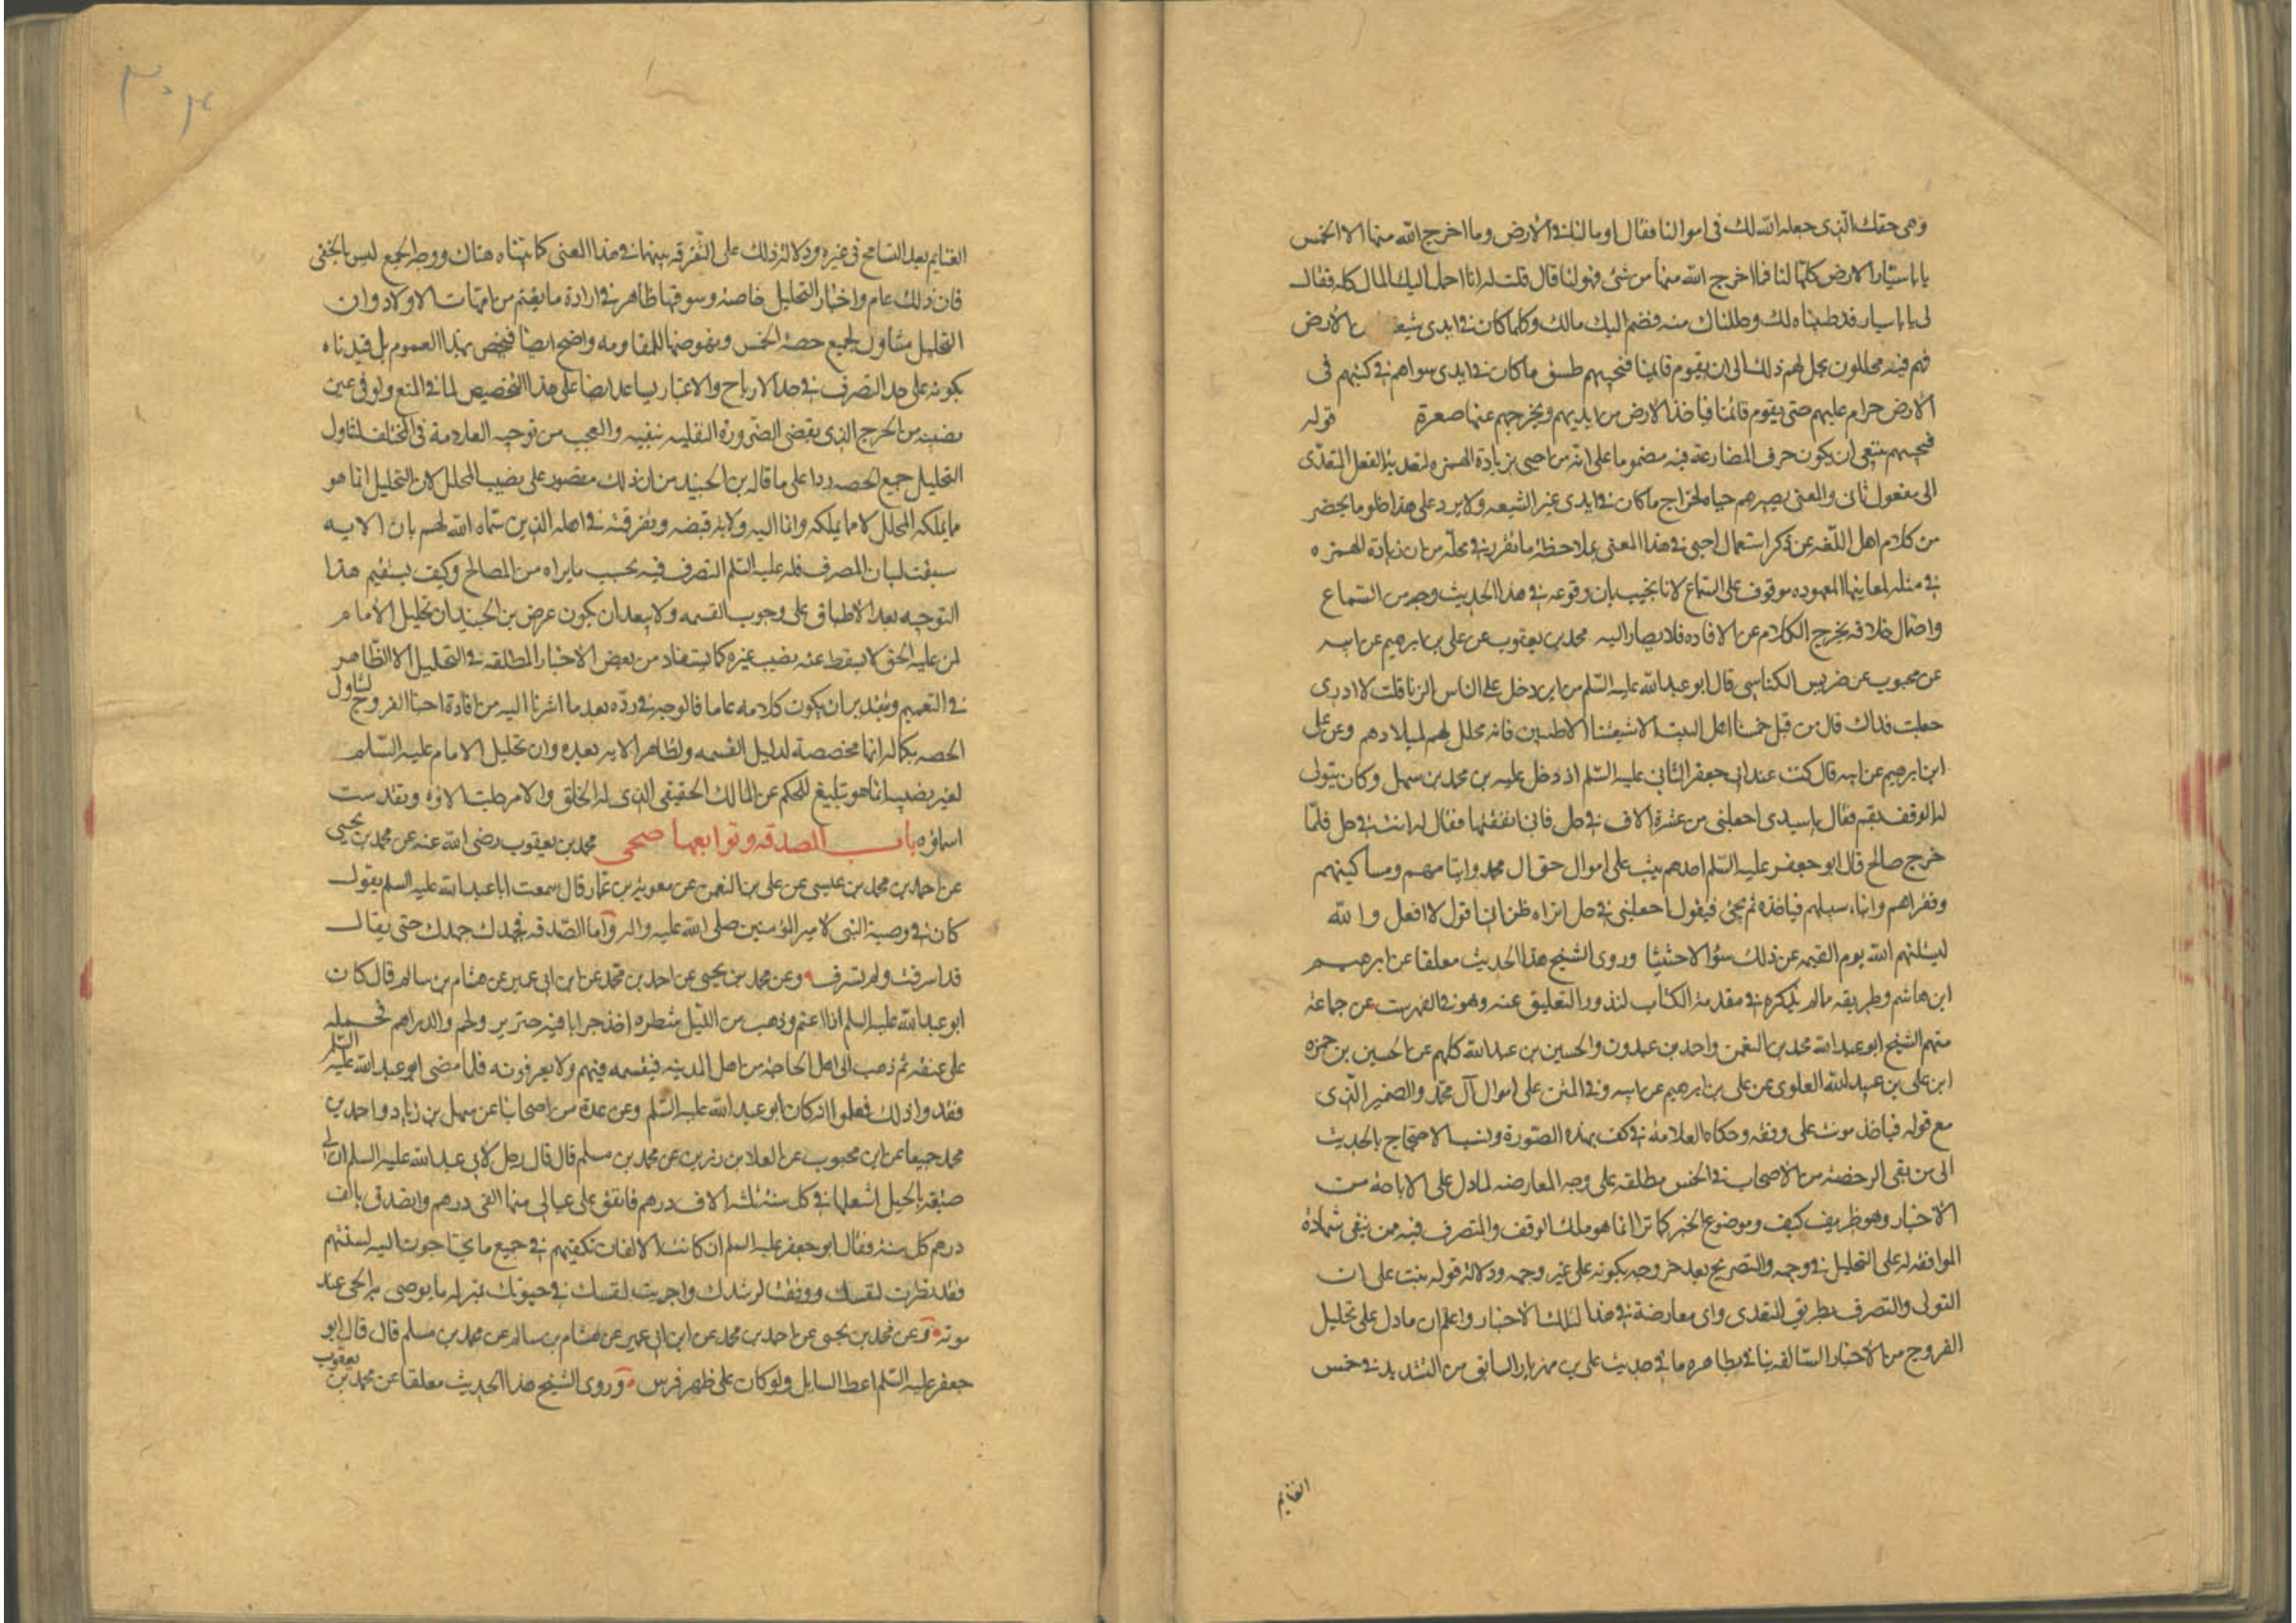 وهى حقك الذى جعله الله لك فى اموالنا فقال اوما لنا فى الارض وما اخرج الله منها الا الخمس
يا با سيار الارض كلها لنا فما اخرج الله منها من شئ فهو لنا قال قلت له انا احمل اليك المال كله فقال
لى يا با سيار قد طيبناه لك وحللناك منه فضم اليك مالك وكلما كان فى ايدى شيعتنا من الارض
فهم فيه محللون يحل لهم ذلك الى ان يقوم قائمنا فيجبيهم طسق ما كان فى ايدى سواهم فان كسبهم فى
الارض حرام عليهم حتى يقوم قائمنا فياخذ الارض من ايديهم ويخرجهم عنها صغرة قوله
فيجبيهم ينبغى ان يكون حرف المضارعة فيه مضموما على انه من احبى بزيادة الهمزه لتعديه الفعل المتعدى
الى مفعول ثان والمعنى يصيرهم جباه لخراج ما كان فى ايدى غير الشيعه ولا يرد على هذا خلو ما يحضر
من كلام اهل اللغه عن ذكر استعمال احبى فى هذا المعنى بملاحظة ما تقرر فى محله من ان زيادة الهمزه
فى مثله لمعانيها المعهوده موقوف على السماع لانا نجيب بان وقوعه فى هذا الحديث وجه من السماع
واحتمال خلافه يخرج الكلام عن الافاده فلا يصار اليه محمد بن يعقوب عن على بن ابرهيم عن ابيه
عن محبوب عن ضريس الكناسى قال ابو عبد الله عليه السلم من اين دخل على الناس الزنا قلت لا ادرى
جعلت فداك قال من قبل خمسنا اهل البيت الا شيعتنا الاطيبين فانه محلل لهم لميلادهم وعن على
ابن ابرهيم عن ابيه قال كنت عند ابى جعفر الثانى عليه السلم اذ دخل عليه بن محمد بن سهل وكان يتولى
له الوقف بقم فقال يا سيدى اجعلنى من عشرة الاف فى حل فانى انفقتها فقال له انت فى حل فلما
خرج صالح قال ابو جعفر عليه السلم احدهم يثب على اموال حق ال محمد وايتامهم ومساكينهم
وفقراهم وابناء سبيلهم فياخذه ثم يجئ فيقول اجعلنى فى حل اتراه ظن انى اقول لا افعل والله
ليسئلنهم الله يوم القيمه عن ذلك سؤالا حثيثا وروى الشيخ هذا الحديث معلقا عن ابرهيم
ابن هاشم وطريقه مالم يذكره فى مقدمة الكتاب لندور التعليق عنه وهو فى الفهرست عن جماعة
منهم الشيخ ابو عبد الله محمد بن النعمن واحمد بن عبدون والحسين بن عبد الله كلهم عن الحسين بن حمزه
ابن على بن عبد الله العلوى عن على بن ابرهيم عن ابيه وفى المتن على اموال آل محمد والضمير الذى
مع قوله فياخذ مونث على وفقه وحكاه العلامة فى كف بهذه الصورة ونسب الاحتجاج بالحديث
الى من نفى الرخصة من الاصحاب فى الخمس مطلقه على وجه المعارضه لما دل على الاباحة من
الاخبار وهو ظريف كيف وموضوع الخبر كما ترا انما هو ملك الوقف والمتصرف فيه من ينفى شهادة
الموافقه له على التحليل فى وجهه والتصريح بعد خروجه بكونه على غير وجهه ودلالة قوله يثب على ان
التولى والتصرف بطريق التعدى واى معارضة فى هذا لتلك الاخبار واعلم ان ما دل على تحليل
الفروج من الاخبار السالفه ينافى بظاهره ما فى حديث على بن مهزيار السابق من التشديد فى خمس
الغنايم
الغنايم بعد التسامح فى غيره ودلالة ذلك على التفرقه بينهما فى هذا المعنى كما بيناه هناك ووجه الجمع ليس بالخفى
فان ذلك عام واخبار التحليل خاصة وسوقها ظاهر فى ارادة ما يغتنم من امهات الاولاد وان
التحليل متناول لجميع حصة الخمس ونهوضها للمقاومه واضح ايضا فيخص بهذا العموم بل قيدناه
بكونه على حد التصرف فى هذا الارباح والاعتبار يساعد ايضا على هذا التخصيص لما فى المنع ولو فى عين
نصيبه من الحرج الذى يقضى الضرورة النقليه بنفيه والعجب من توجيه العلامة فى المختلف لتناول
التحليل جميع الحصه ردا على ما قاله بن الجنيد من ان ذلك مقصور على نصيب المحلل لان التحليل انما هو
ما يملكه المحلل لا ما يملكه وانما اليه ولاية قبضه وتفرقته فى اهله الذين سماه الله لهم بان الايه
سيقت لبيان المصرف فله عليه السلم التصرف فيه بحسب ما يراه من المصالح وكيف يستقيم هذا
التوجيه بعد الاطباق على وجوب القسمه ولا يبعد ان يكون غرض بن الجنيد ان تحليل الامام
لمن عليه الحق لا يسقط عنه نصيب غيره كما يستفاد من بعض الاخبار المطلقه فى التحليل الا الظاهر
فى التعميم وبتقدير ان يكون كلامه عاما فالوجه فى رده بعد ما اشرنا اليه من افادة اخبار الفروج لتناول
الحصه بكماله انها مخصصة لدليل القسمه ولظاهر الايه بعده وان تحليل الامام عليه السلم
لغير نصيبه انما هو تبليغ للحكم عن المالك الحقيقى الذى له الخلق والامر جلت الاؤه وتقدست
اسماؤه باب الصدقه وتوابعها صحى محمد بن يعقوب رضى الله عنه عن محمد بن يحيى
عن احمد بن محمد بن عيسى عن على بن النعمن عن معوية بن عمار قال سمعت ابا عبد الله عليه السلم يقول
كان فى وصية النبى لامير المؤمنين صلى الله عليه واله واما الصدقه فجهدك جهدك حتى يقال
قد اسرفت ولم تسرف وعن محمد بن يحيى عن احمد بن محمد عن ابن ابى عمير عن هشام بن سالم قال كان
ابو عبد الله عليه السلم اذا اعتم وذهب من الليل شطره اخذ جرابا فيه خبز ولحم والدراهم فحمله
على عنقه ثم ذهب الى اهل الحاجة من اهل المدينه فيقسمه فيهم ولا يعرفونه فلما مضى ابو عبد الله عليه السلم
فقدوا ذلك فعلموا انه كان ابو عبد الله عليه السلم وعن عدة من اصحابنا عن سهل بن زياد واحمد بن
محمد جميعا عن ابن محبوب عن العلا بن رزين عن محمد بن مسلم قال قال رجل لابى عبد الله عليه السلم ان لى
ضيعة بالجبل اشغلها فى كل سنة ثلثه الاف درهم فانفق على عيالى منها الفى درهم واتصدق بالف
درهم كل سنة فقال ابو جعفر عليه السلم ان كانت الالفان تكفيهم فى جميع ما يحتاجون اليه لسنتهم
فقد نظرت لنفسك ووفقت لرشدك واجريت لنفسك فى حيوتك بمنزلة ما يوصى به الحى عند
موته وعن محمد بن يحيى عن احمد بن محمد عن ابن ابى عمير عن هشام بن سالم عن محمد بن مسلم قال قال ابو
جعفر عليه السلم اعط السايل ولو كان على ظهر فرس وروى الشيخ هذا الحديث معلقا عن محمد بن يعقوب